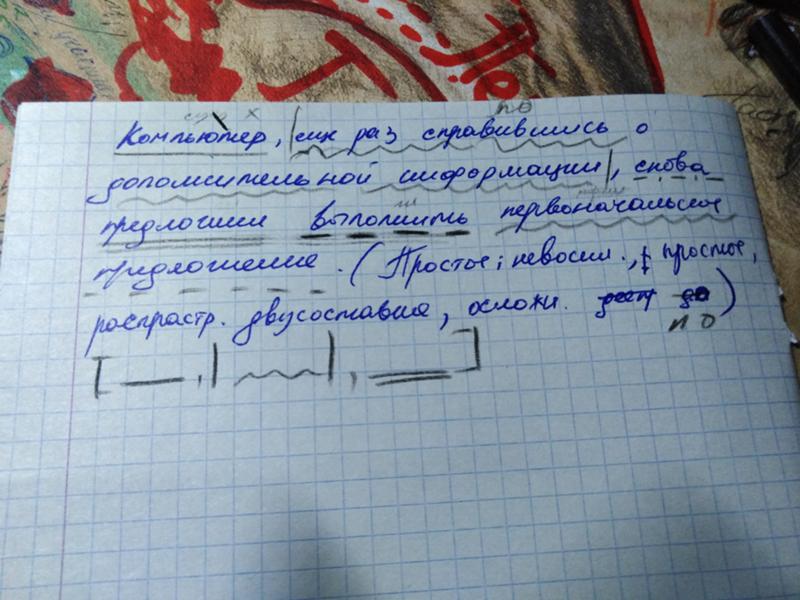 Компьютер, |еще раз справившись о
дополнительной информации|, снова
предложил выполнить первоначальное
предложение. (Простое; невоскл., простое,
распростр. двусоставное, осложн. )
п о
[ , | | , ]